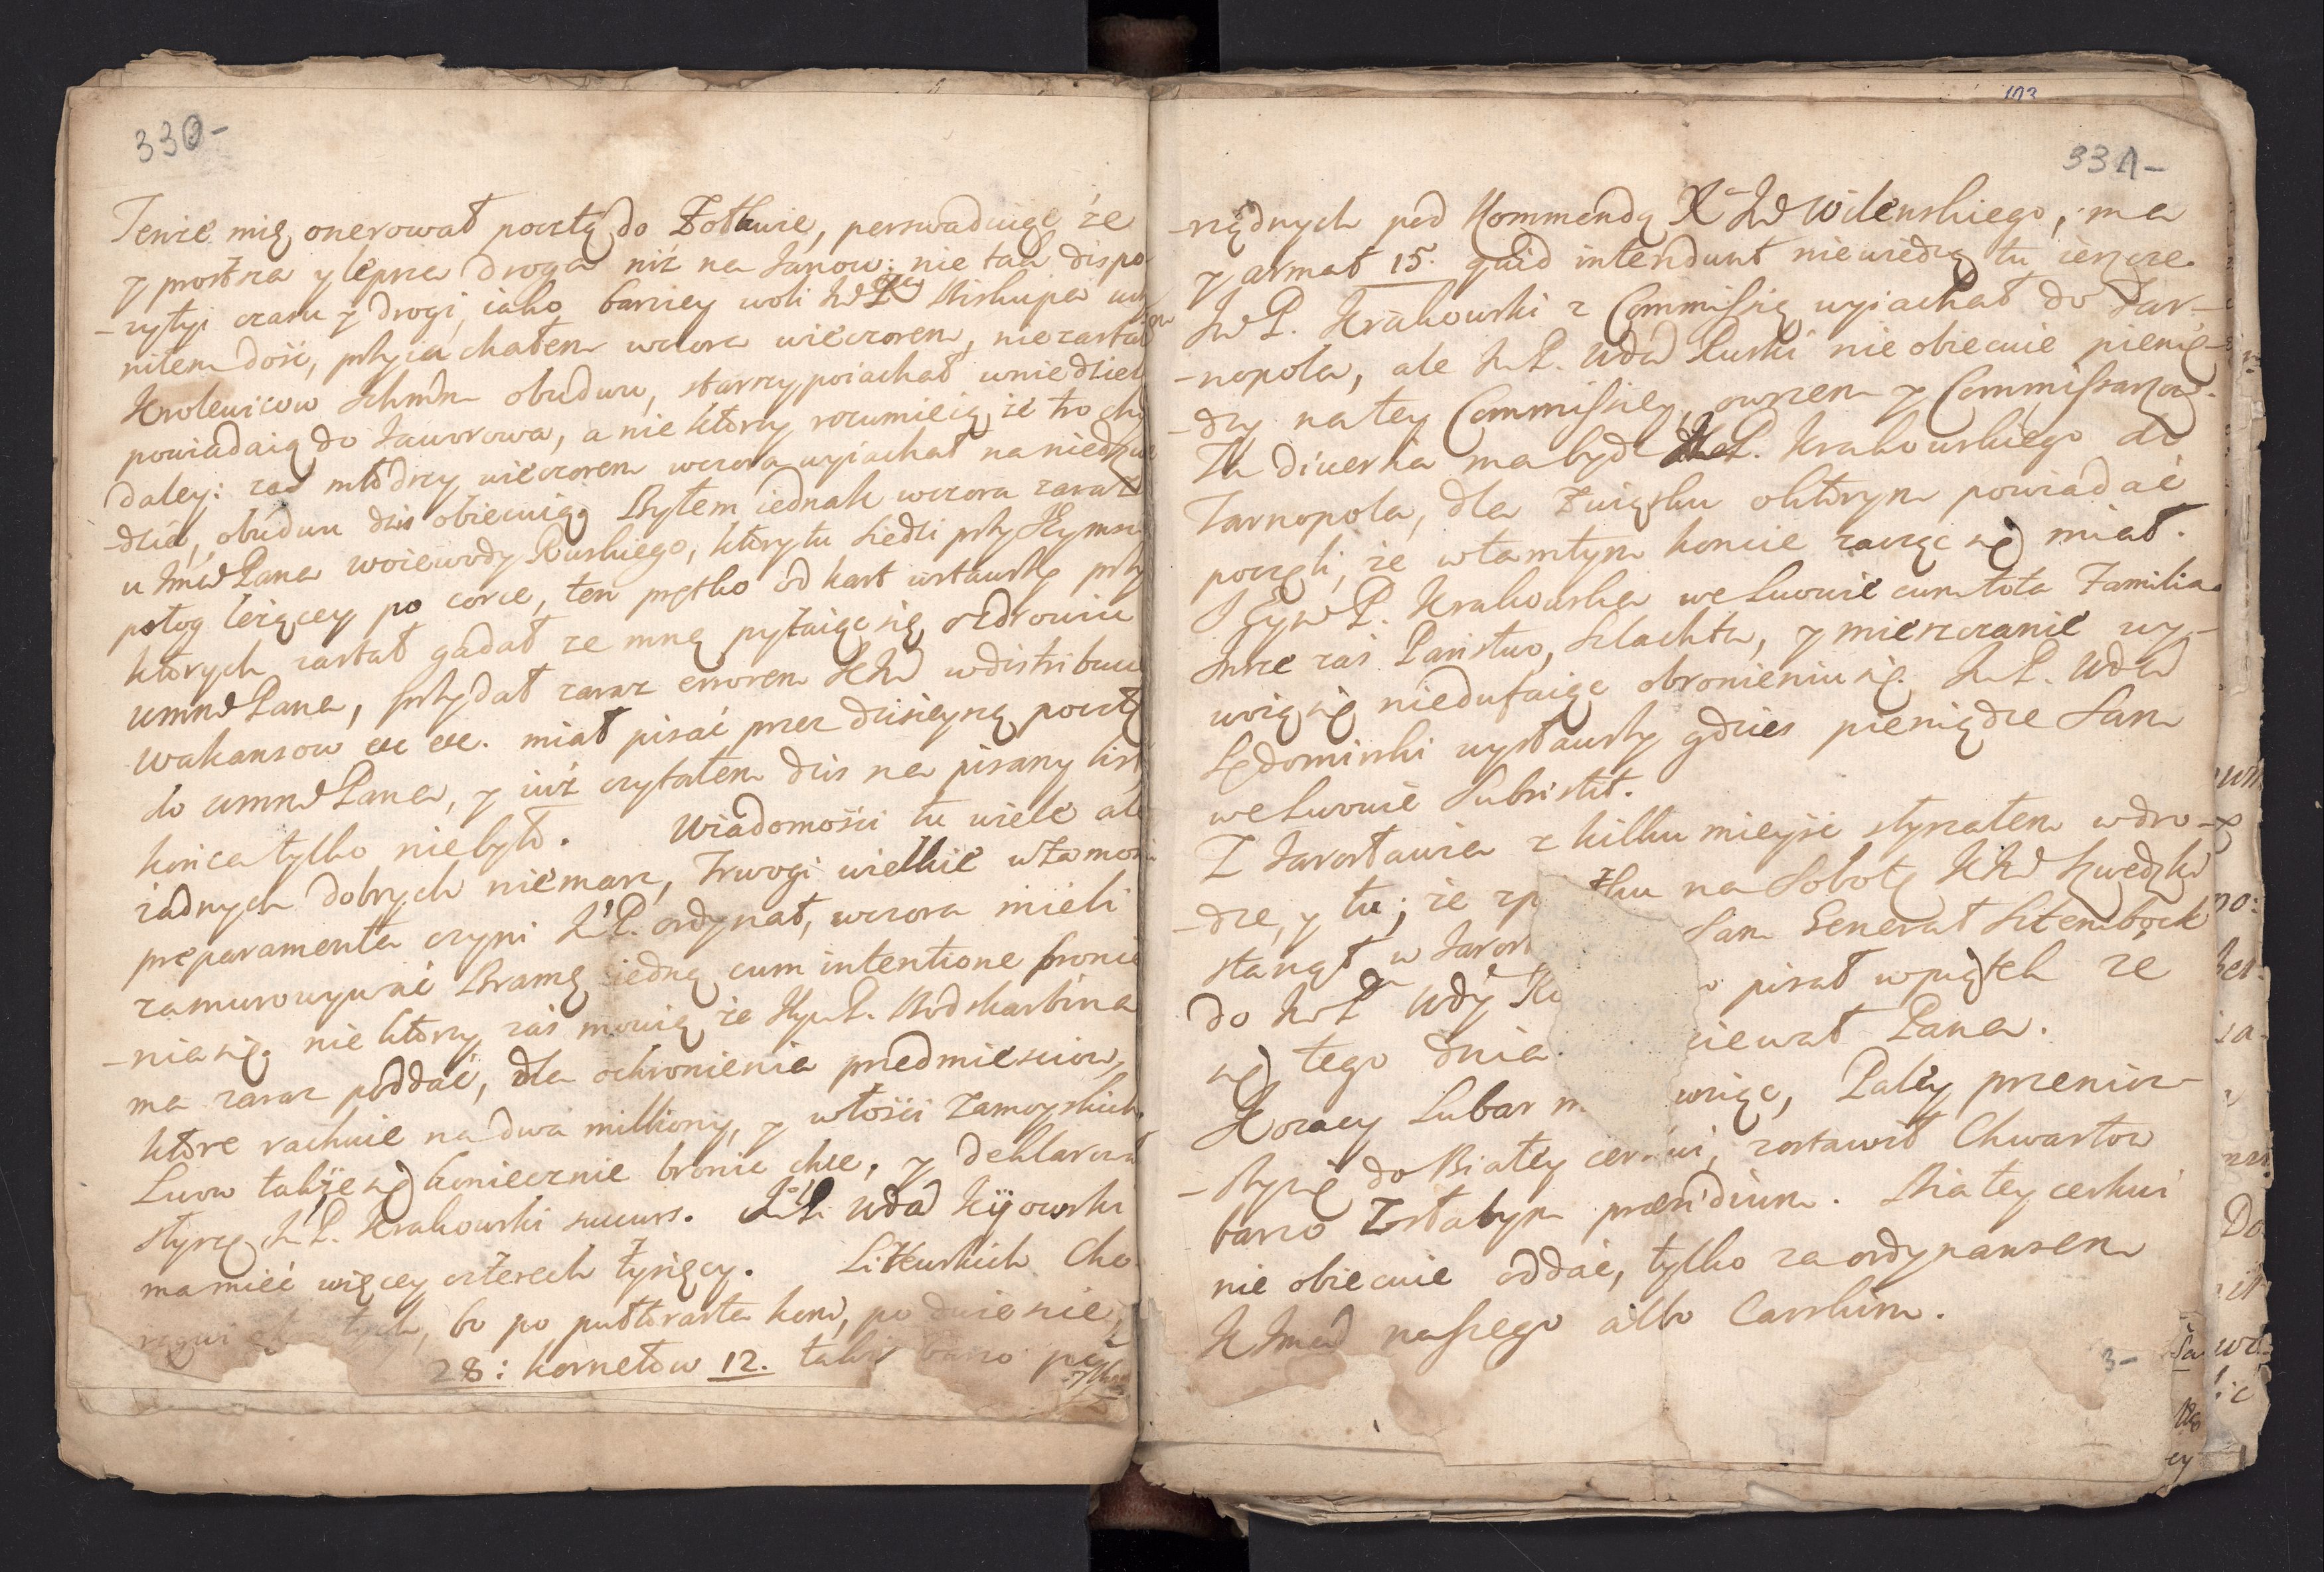 330-
Tenże mię onerował pocztą do Żołkwie, perswaduiąc że
y prostsza y lepsza droga niż na Janow: nie tak dispo-
-zytyi czasu y drogi, iako barziey woli JWP Biskupa
niłem dość, przyiachałem wczora wieczorem, nie zastał
Krolewicow Ichmśćn obudwu, starszy poiachał w niedziel
powiadaią do Jaworowa, a nie ktorzy rozumieią że troch
daley: zaś młodszy wieczorem wczora wyiachał na
-dzid, obudwu dzis obiecuią Byłem iednak wczora zaraz
u Pana Woiewody Ruskiego, ktory tu siedzi przy
połog leżącey po corce, ten prętko od kart wstawszy przy
ktorych zastał gadał ze mną pytaiąc się o zdrowiu
WMM Pana, przydał zaraz errorem w distribucy
Wakansow etc etc. miał pisać przez dzisieyszą pocztę
do WMM Pana, y iuż czytałem dzis na pisany list
końca tylko niebyło. Wiadomości tu wiele ale
żadnych dobrych niemasz, Trwogi wielkie w Zamo
preparamenta czyni J.P. ordynat, wczora mieli
zamurowywać Bramę iedną cum intentione bronie
-nia się, nie ktorzy zaś mowią że P. Podskarbina
ma zaraz poddać, dla ochronienia przedmiesciow,
ktore rachuie na dwa milliony, y włości Zamoyskich.
Lwow takze się koniecznie bronic chce, y deklarował
słyszę J.P. Krakowski sukurs. J.P. Wda Kijowski
ma mieć więcey czterech tysięcy. Litewskich Cho-
bo po pułtorasta koni, po dwie nie
28: kornetow 12.
331-
-rządnych pod Kommendą X JW Wilenskiego, ma
y armat 15. quid intendunt niewiedzą tu ieszcze.
JWP. Krakowski z Commissią wyiachał do Tar-
-nopola, ale J.P. Wda Ruski nie obiecuie pienię-
-dzy na tey Commissiey, owszem y Commissarzow.
Ta diversia ma bydz P. Krakowskiego do
Tarnopola, dla Związku o ktorym powiadać
poczęli, że w tamtym koncie zacząc się miał.
P. Krakowska we Lwowie cum tota Familia.
Insze zaś Państwo, Szlachta, y mieszczanie wy-
wożą się niedufaiąc obronieniu się. J.P. Wda
Sędomirski wysławszy gdzies pieniądze Sam
we Lwowie Subsistit.
Z Jarosławia z kilku mieysc słyszałem w dro-
-dze, y tu; że zp tku na Sobotę Szwedzki
stanął w Jaros Sam Generał Sztembock
do J.P. Wdy Ki pisał w piątek ze
się tego dnia. ziewał Pana.
Kozacy Lubar wiąc, Paley przenios-
-szy się do Białey cerkwi, zostawił Chwastow
barzo z słabym presidium. Białey cerkwi
nie obiecuie oddać, tylko za ordynansem
naszego albo Carskim.
3-